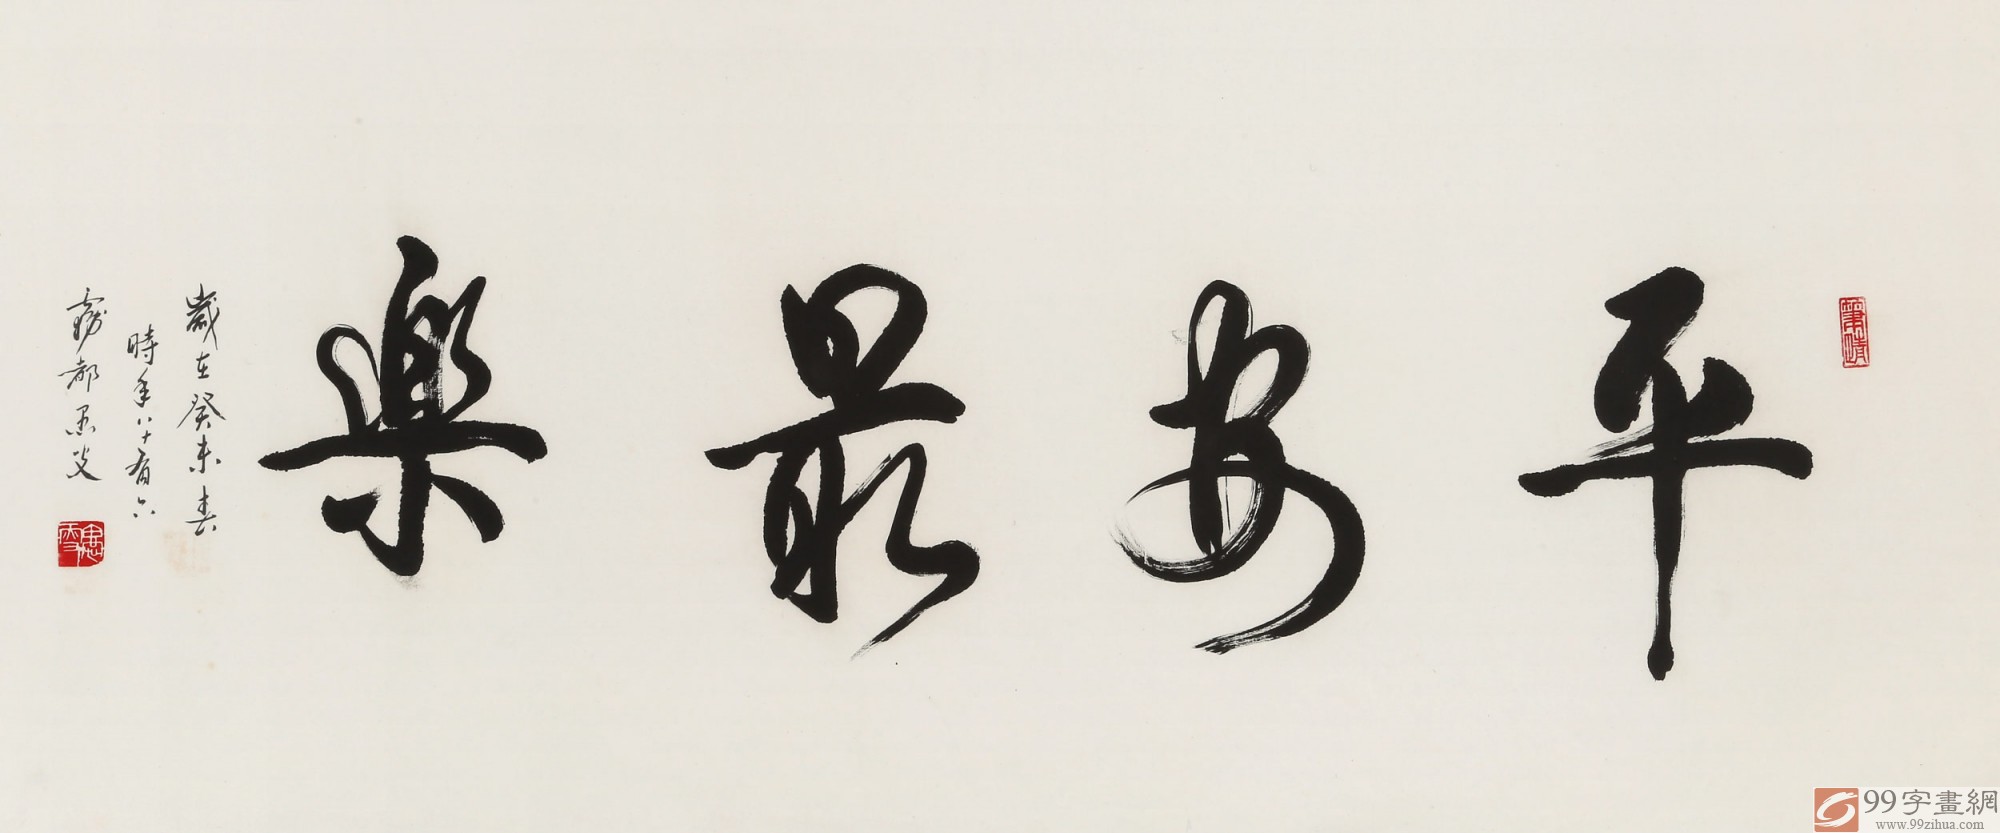 平安最樂
歲在癸未春
時年八十有六
霧都愚父
99字畫網
www.99zihua.com